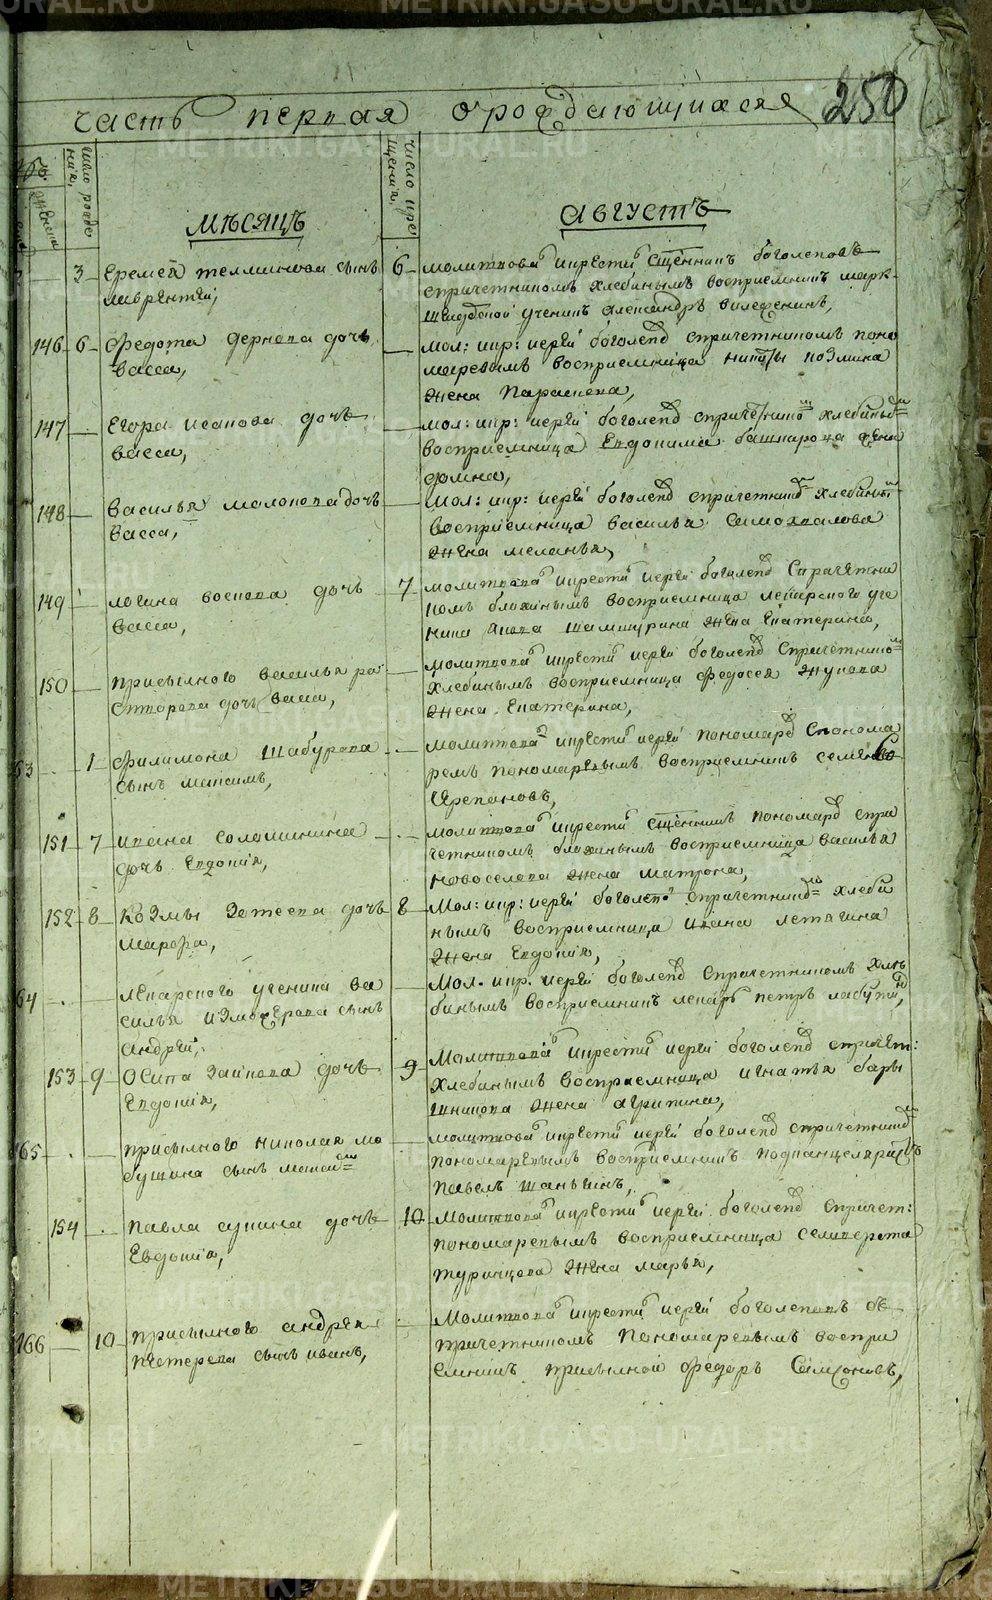 часть первая о рождающихся 250
число рожде
нiя,
число кре
щенiя,
женска
мѣсяцъ
августъ
3 Еремея теллинова сынъ
лаврентей,
6 молитвовалъ и крестилъ сщенникъ боголеповъ
спричетникомъ хлебинымъ восприемникъ марк
шейдрской ученикъ александръ
146 6 Федота дернова дочь
васса,
мол: икр: иерей боголепо спричетникомъ поно
маревымъ восприемница никиты козмина
жена Парасковья,
147 Егора исакова дочь
васса,
мол: икр: иерей боголепо спричетнико хлебины
восприемница Евдокима башкирова жена
домна,
148 василья молокова дочь
васса,
мол: икр: иерей боголепо спричетнико хлебины
восприемница василья Самохвалова
жена меланья,
149 логина воскова дочь
васса,
7 молитвова икрести иерей боголепо Спричетни
комъ блохинымъ восприемница лекарского уче
ника якова шамшурина жена Екатерина,
150 присылного василья ра
сторгова дочь васса,
молитвова икрести иерей боголепо Спричетнико
хлебинымъ восприемница федосея жукова
жена Екатерина,
63 1 филимона шабурова
сынъ максимъ,
молитвова икрести иерей пономаро Спонома
ремъ пономаревымъ восприемникъ семенъ
Черепановъ,
151 7 ивана соломинина
дочь Евдокiя,
молитвова икрести сщенникъ пономаро спри
четникомъ блохинымъ восприемница василья
новоселова жена матрона,
152 8 козмы Зотеева дочь
марфа,
8 мол: икр: иерей боголепо спричетнико хлеби
нымъ восприемница ивана летягина
жена Евдокiя,
64 лекарского ученика ва
силья изможерова сынъ
андрей,
Мол. икр. иерей боголепо Спричетникомъ хле
бинымъ восприемникъ лекарь петръ лабути,
153 9 Осипа Заикова дочь
Евдокiя,
9 Молитвова икрести иерей боголепо спричет:
хлебинымъ восприемница игнатья бары
шникова жена агрипина,
65 присылного николая мо
сушина сынъ максим
молитвова икрести иерей боголепо спричетнико
пономаревымъ восприемникъ подканцеляристъ
павелъ шаньгинъ,
154 павла сукина дочь
Евдокiя,
10 Молитвова икрести иерей боголепо Спричет:
пономаревымъ восприемница селиверста
туринцова жена марья,
166 10 присылного андрея
пестерева сынъ иванъ,
Молитвова икрести иерей боголеповъ С
причетникомъ Пономаревымъ воспри
емникъ присылной федоръ Самсоновъ,